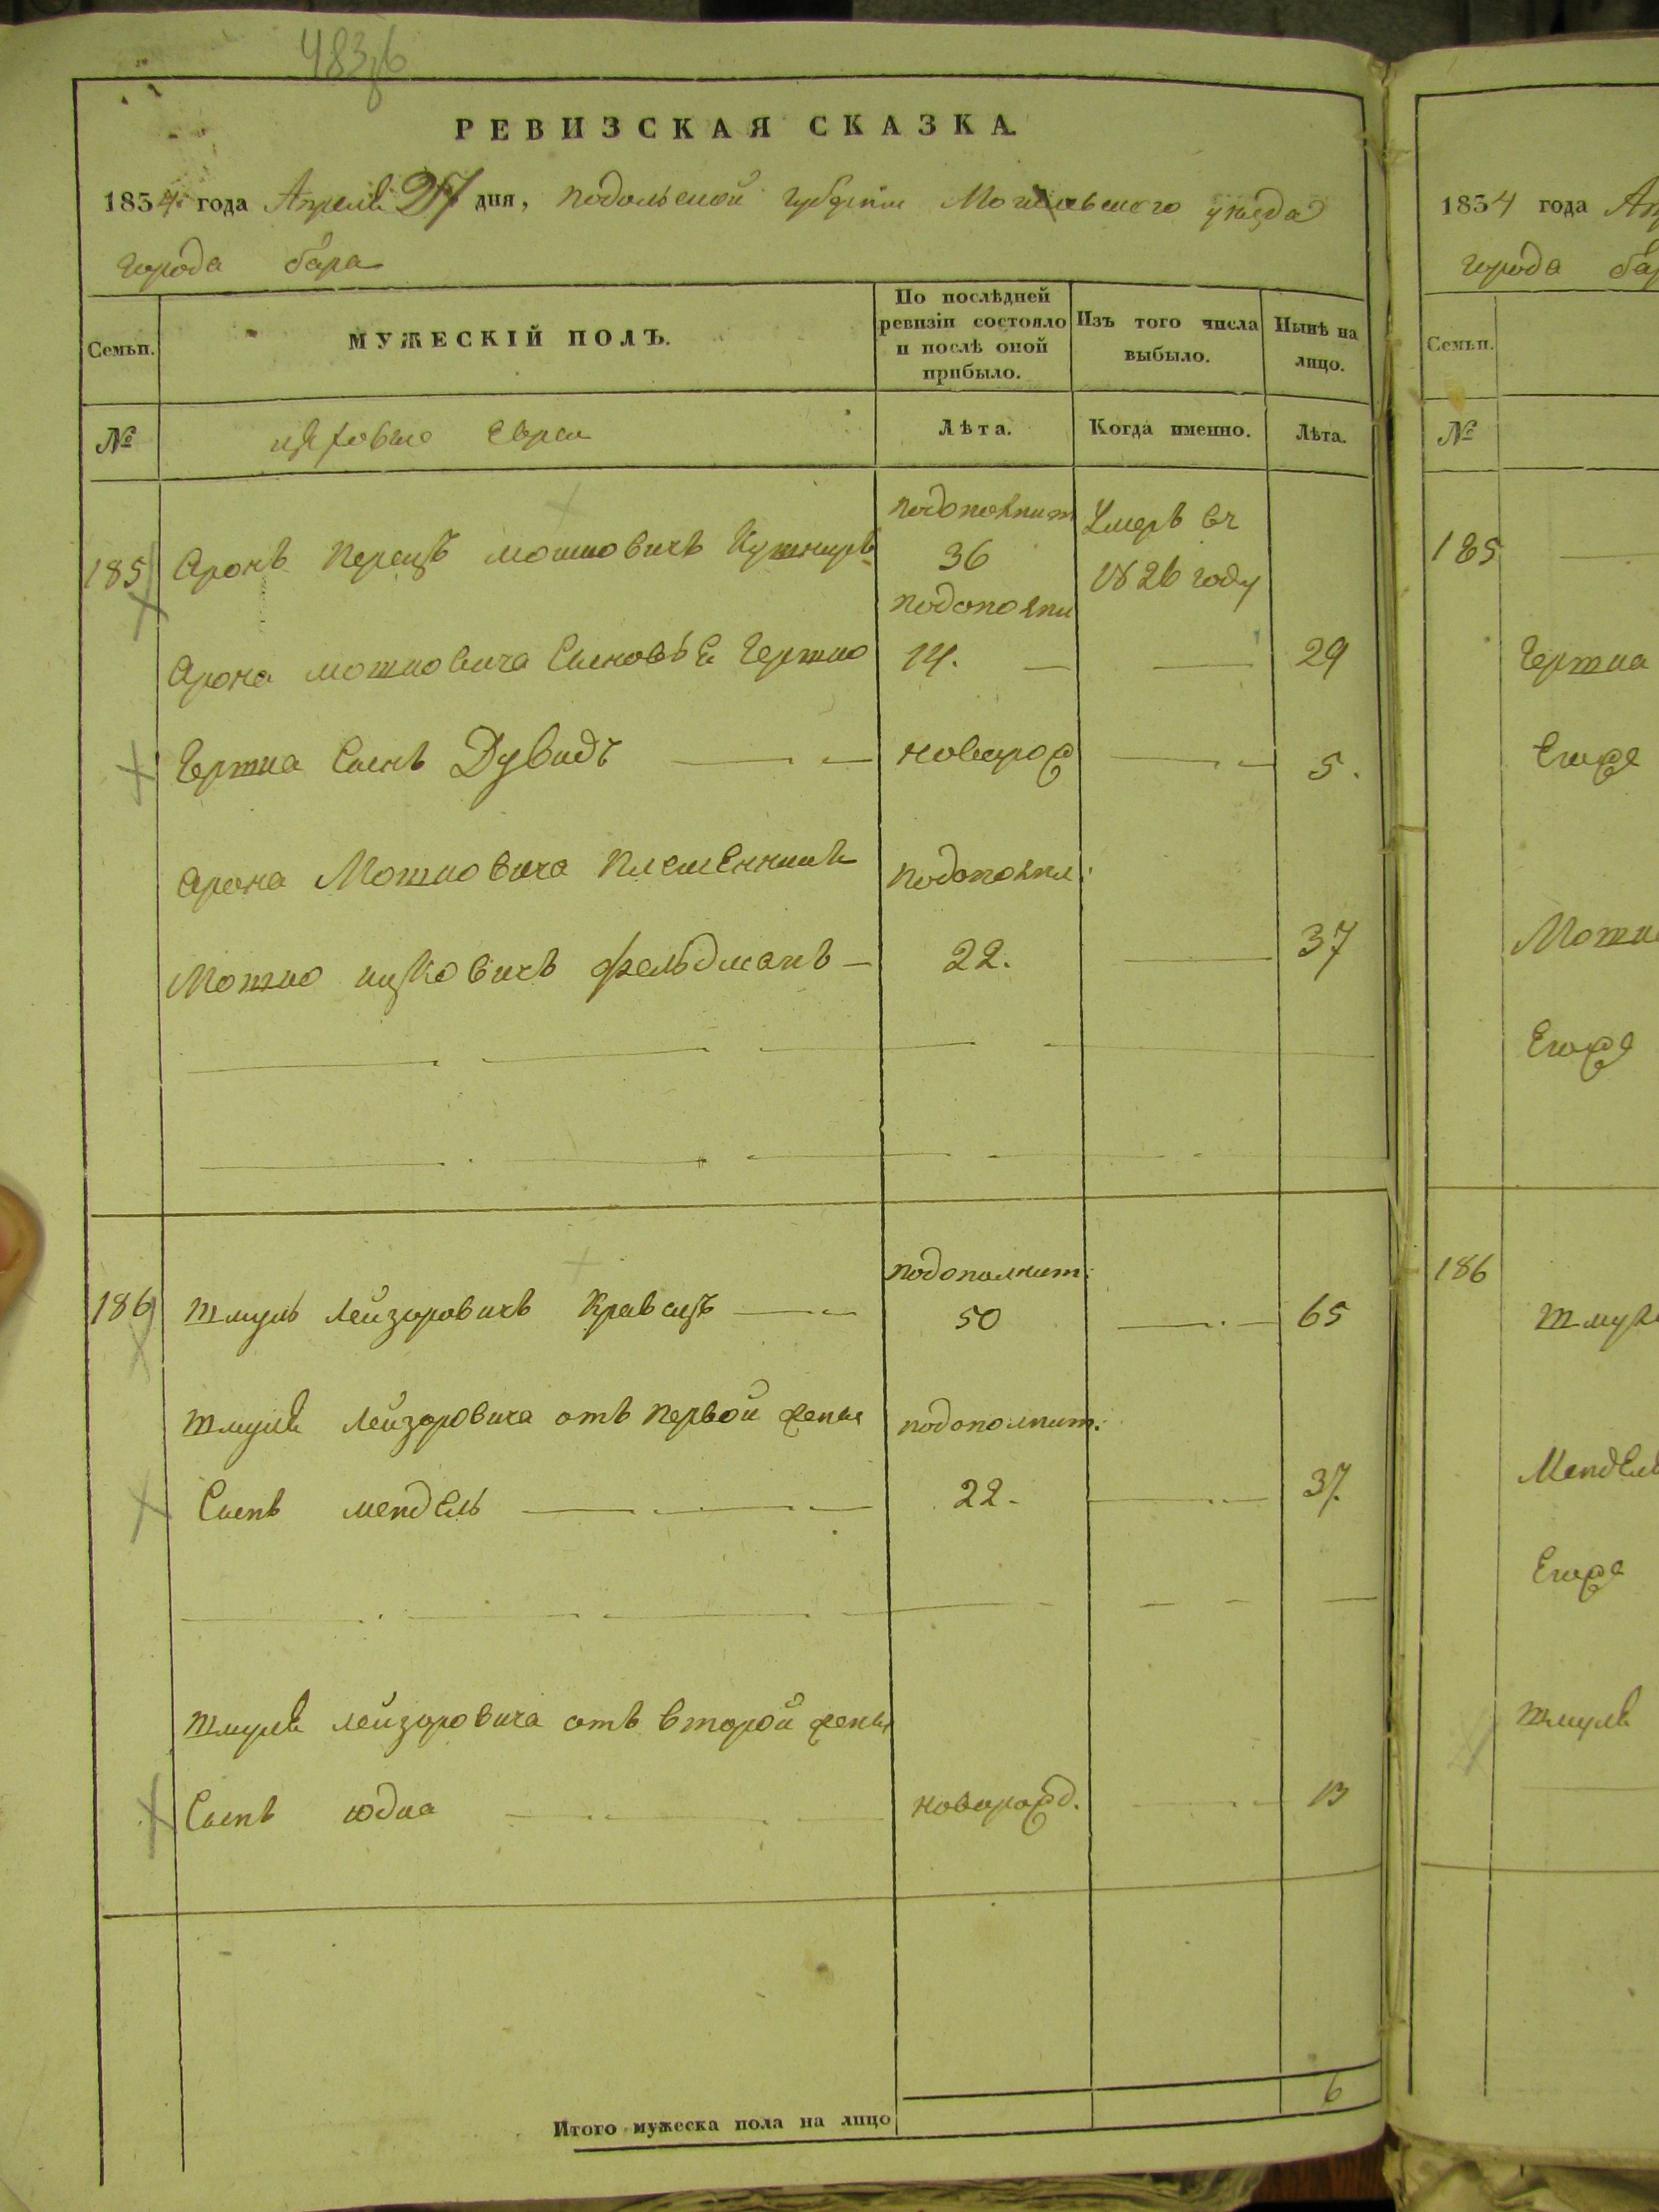 483 об
РЕВИЗСКАЯ СКАЗКА.
1854 года Апреля 27 дня, подольской губерніи Могилевского уезда
города бара
Семьи.
МУЖЕСКІЙ ПОЛЪ.
По послѣдней ревизіи состояло и послѣ оной прибыло.
Изъ того числа выбыло.
Нынѣ на лицо.
№
Евреи
Лѣта.
Когда именно.
Лѣта.
185 Аронъ Перецъ мошковичъ Кушниръ
подополнит
36
Умеръ въ
1826 году
подополни
Арона мошковича Сыновья Гершко 14. 29
Гершка Сынъ Дувидъ новорож 5.
Арона Мошковича племенникъ подополни:
Мошко ицковичъ фельдманъ 22. 37
подополнит:
186 Шмуль Лейзоровичъ Кравецъ 50 65
Шмуля Лейзоровича отъ первой жены подополнит:
Сынъ мендель 22. 37.
Шмуля лейзоровича отъ второй жены
Сынъ юдка новорожд. 13
6
Итого мужеска пола на лицо
1854 года
города
Семьи.
№
185
Гершка
Егоже
Егоже
186
Егоже
Шмуля